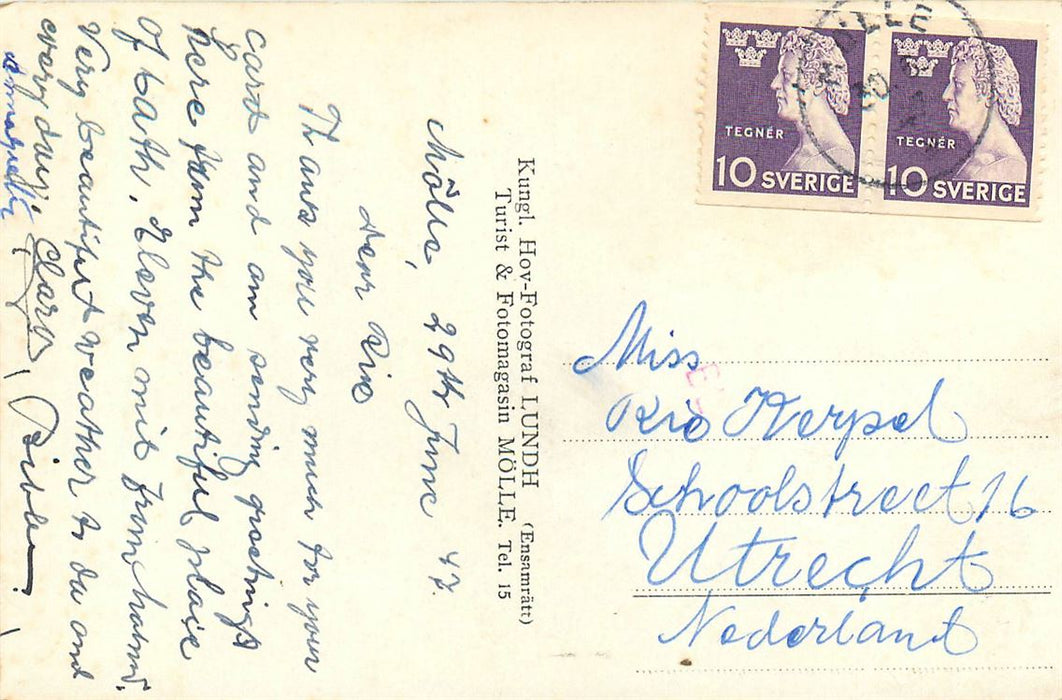 Mölle, 29th June 47.
Dear Rio
Thank you very much for your
card and am sending greetings
here from the beautiful plaie
of bath. Eleven mil from
Very beautiful weather to da and
every day!
MÖLLE
TEGNÉR
10 SVERIGE
TEGNÉR
10 SVERIGE
Kungl. Hov-Fotograf LUNDH (Ensamrätt)
Turist & Fotomagasin MÖLLE. Tel. 15
Miss
Rio Kerpel
Schoolstreet 16
Utrecht
Nederland